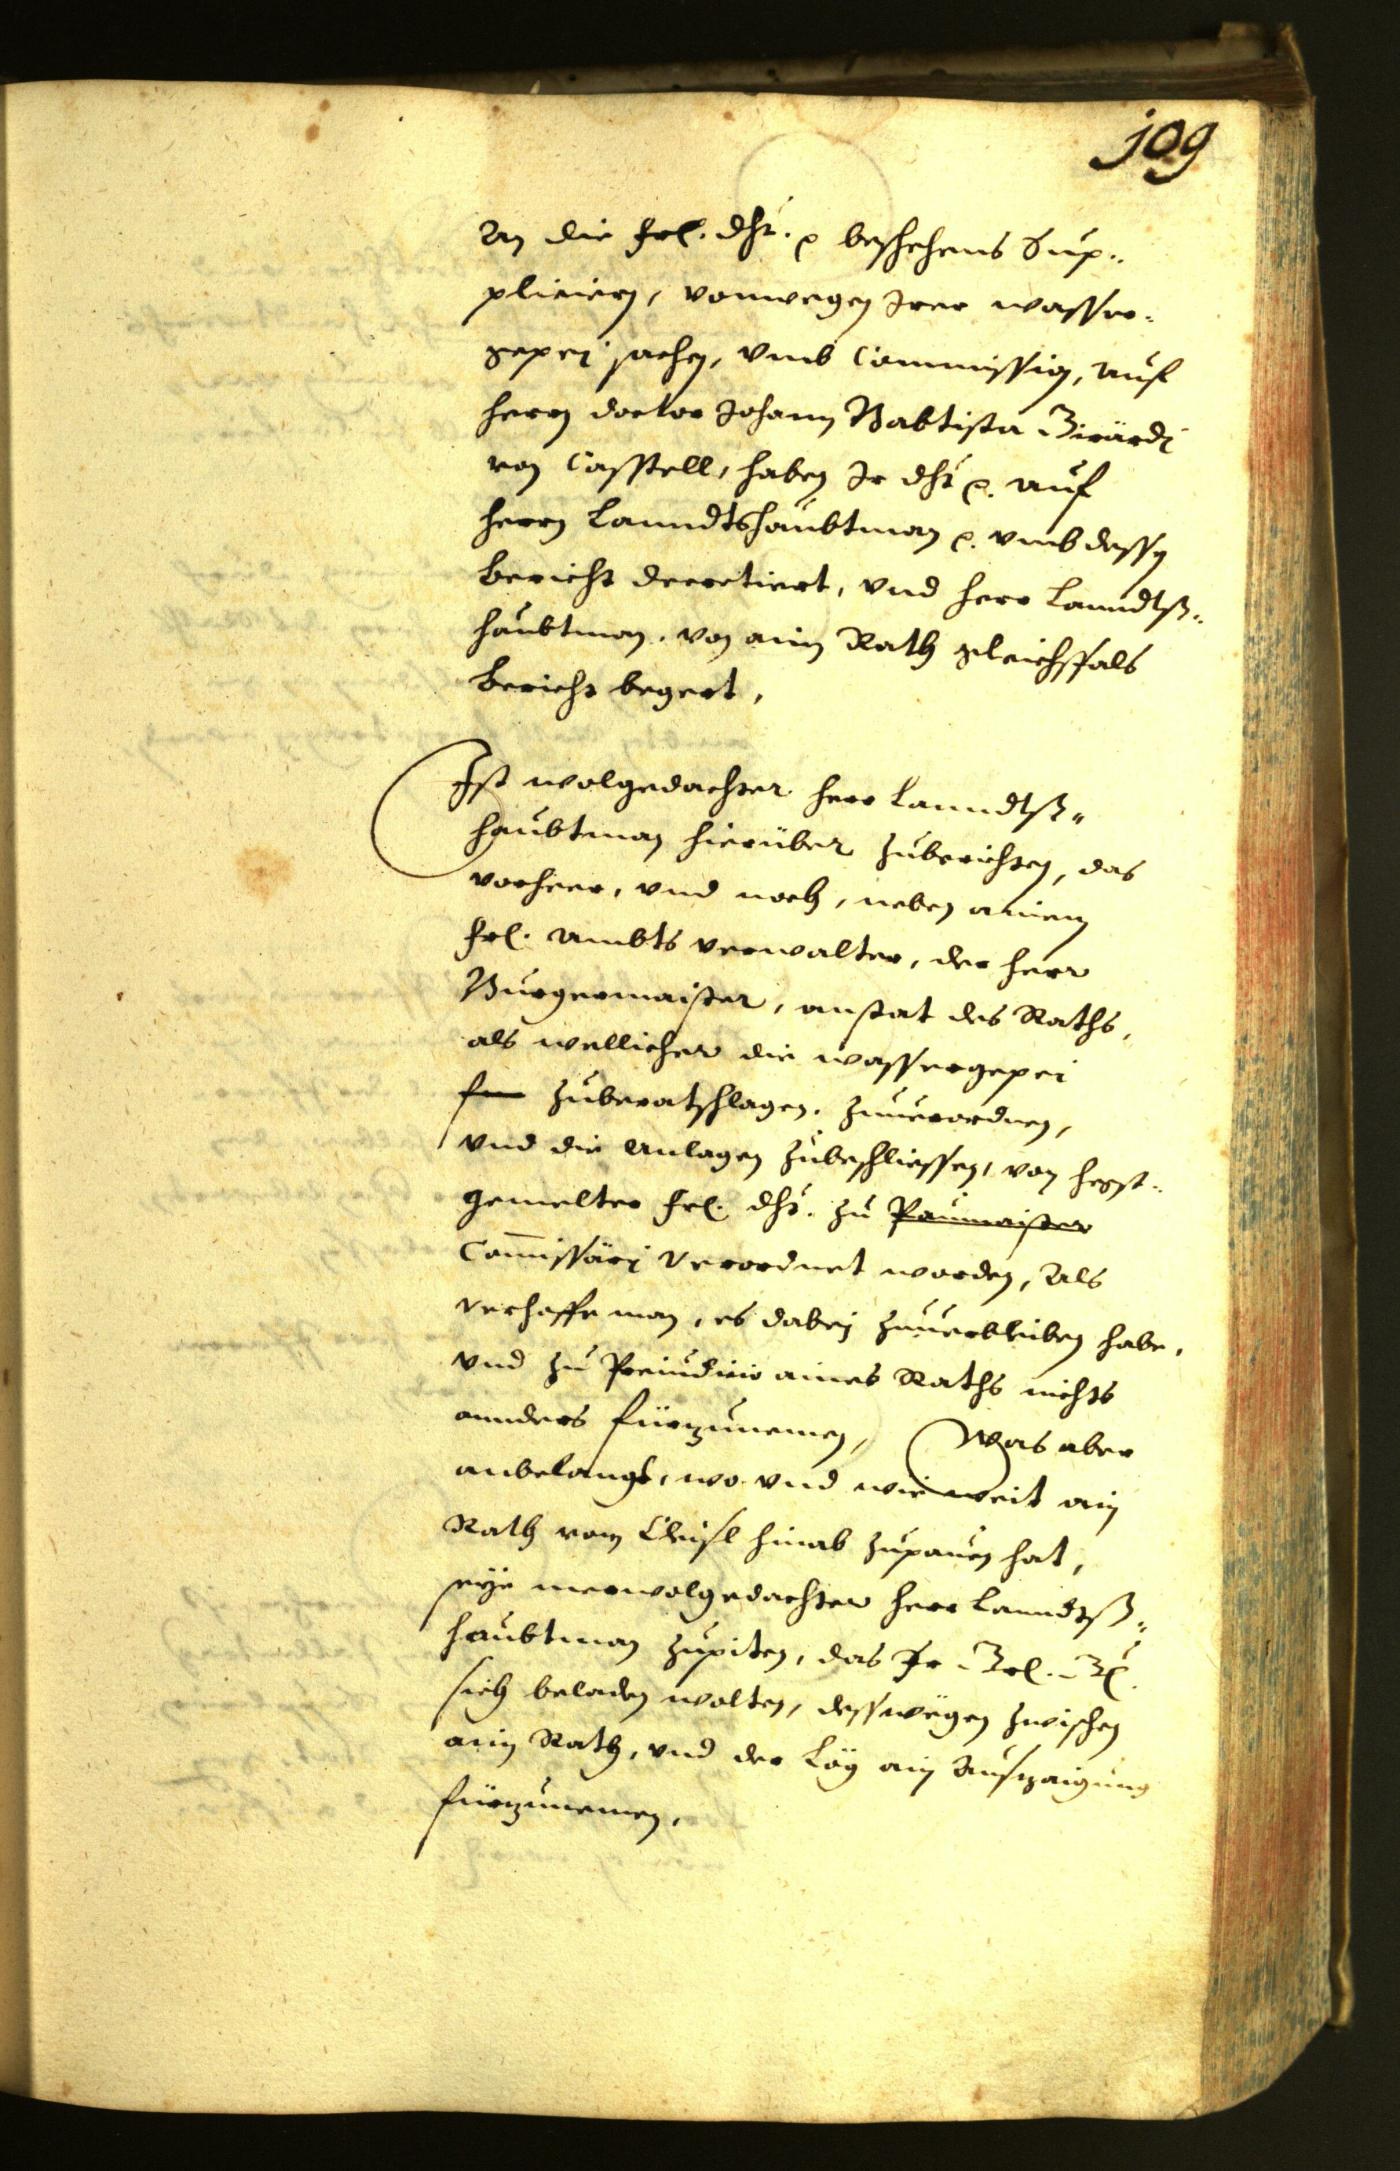 109
An die frl. dht. p beschehens Sup„
plicirn, vonwegen Irer wasser„
gepey sachen, vmb Commission, auf
herrn doctor Johann Babtista Girardj
von Casstell, haben Ir dht p. auf
herrn Lanndtshaubtman p. vmb dessen
bericht decretiert, vnd herr Lanndtß„
haubtman, von ainem Rath gleichsfals
bericht begert,
Ist wolgedachter herr Lanndtß„
haubtman hierüber zuberichten, das
vorheer, vnd noch, neben ainem
frl. Ambts verwalter, der herr
Burgermaister, anstat des Raths,
als wellicher die wassergepei
zuberatschlagen, zuuerordnen,
vnd die Anlagen zubeschliessen, von hegst„
gemelter frl. dht. zu Paumaister
Com̄issärj verordnet worden, Als
verhoffe man, es dabej zuuerbleiben habe,
vnd zu Preiudicio aines Raths nichts
annders fürzunemen, Was aber
anbelangt, wo vnd wie weit ain
Rath vom Eheisl hinab zupauen hat,
seye merwolgedachter herr Lanndtß„
haubtman zupiten, das Ir Grl. Gl.
sich beladen wolten, desswegen zwischen
ain Rath, vnd der Leg ain Ausszaigung
fürzunemen,